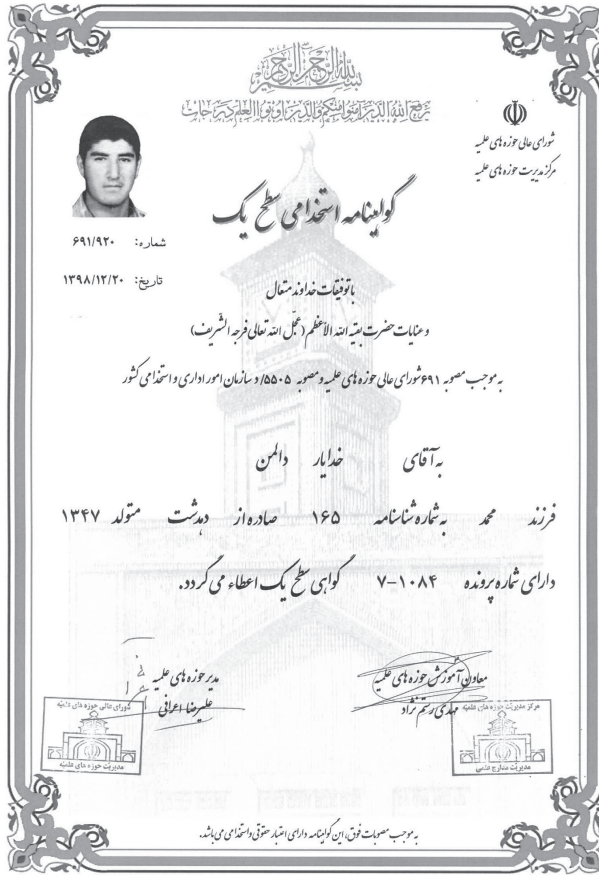 بسم الله الرحمن الرحیم
یرفع الله الذین آمنوا منکم والذین اوتوا العلم درجات
شورای عالی حوزه های علمیه
مرکز مدیریت حوزه های علمیه
گواهینامه استخدامی سطح یک
شماره: ۶۹۱/۹۲۰
تاریخ: ۱۳۹۸/۱۲/۲۰
باتوفیقات خداوند متعال
و عنایات حضرت بقیه الله الأعظم (عجّل الله تعالی فرجه الشّریف)
به موجب مصوبه ۶۹۱ شورای عالی حوزه های علمیه و مصوبه ۵۵۰۵/د سازمان امور اداری و استخدامی کشور
به آقای خدایار دالمن
فرزند محمد به شماره شناسنامه ۱۶۵ صادره از دهدشت متولد ۱۳۴۷
دارای شماره پرونده ۷-۱۰۸۴ گواهی سطح یک اعطاء می گردد.
معاون آموزش حوزه های علمیه
مهدی رستم نژاد
مدیر حوزه های علمیه
علیرضا اعرافی
مرکز مدیریت حوزه های علمیه
مدیریت مدارج علمی
شورای عالی حوزه های علمیه
مدیریت حوزه های علمیه
به موجب مصوبات فوق، این گواهینامه دارای اعتبار حقوقی و استخدامی می باشد.